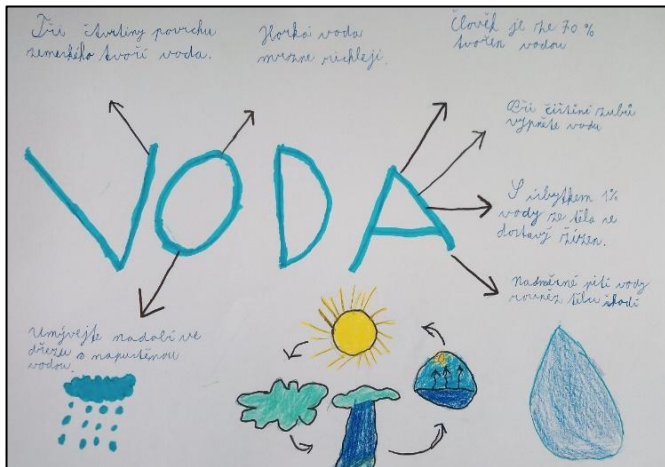 Tři čtvrtiny povrchu
zemského tvoří voda.
Horká voda
mrzne rychleji.
Člověk je ze 70 %
tvořen vodou
VODA
Při čištění zubů
vypněte vodu
S úbytkem 1%
vody ze těla se
dostavý žízen.
Nadměrné pití vody
rovněz tělu škodí
Umývejte nadobí ve
dřezu s napuštěnou
vodou.